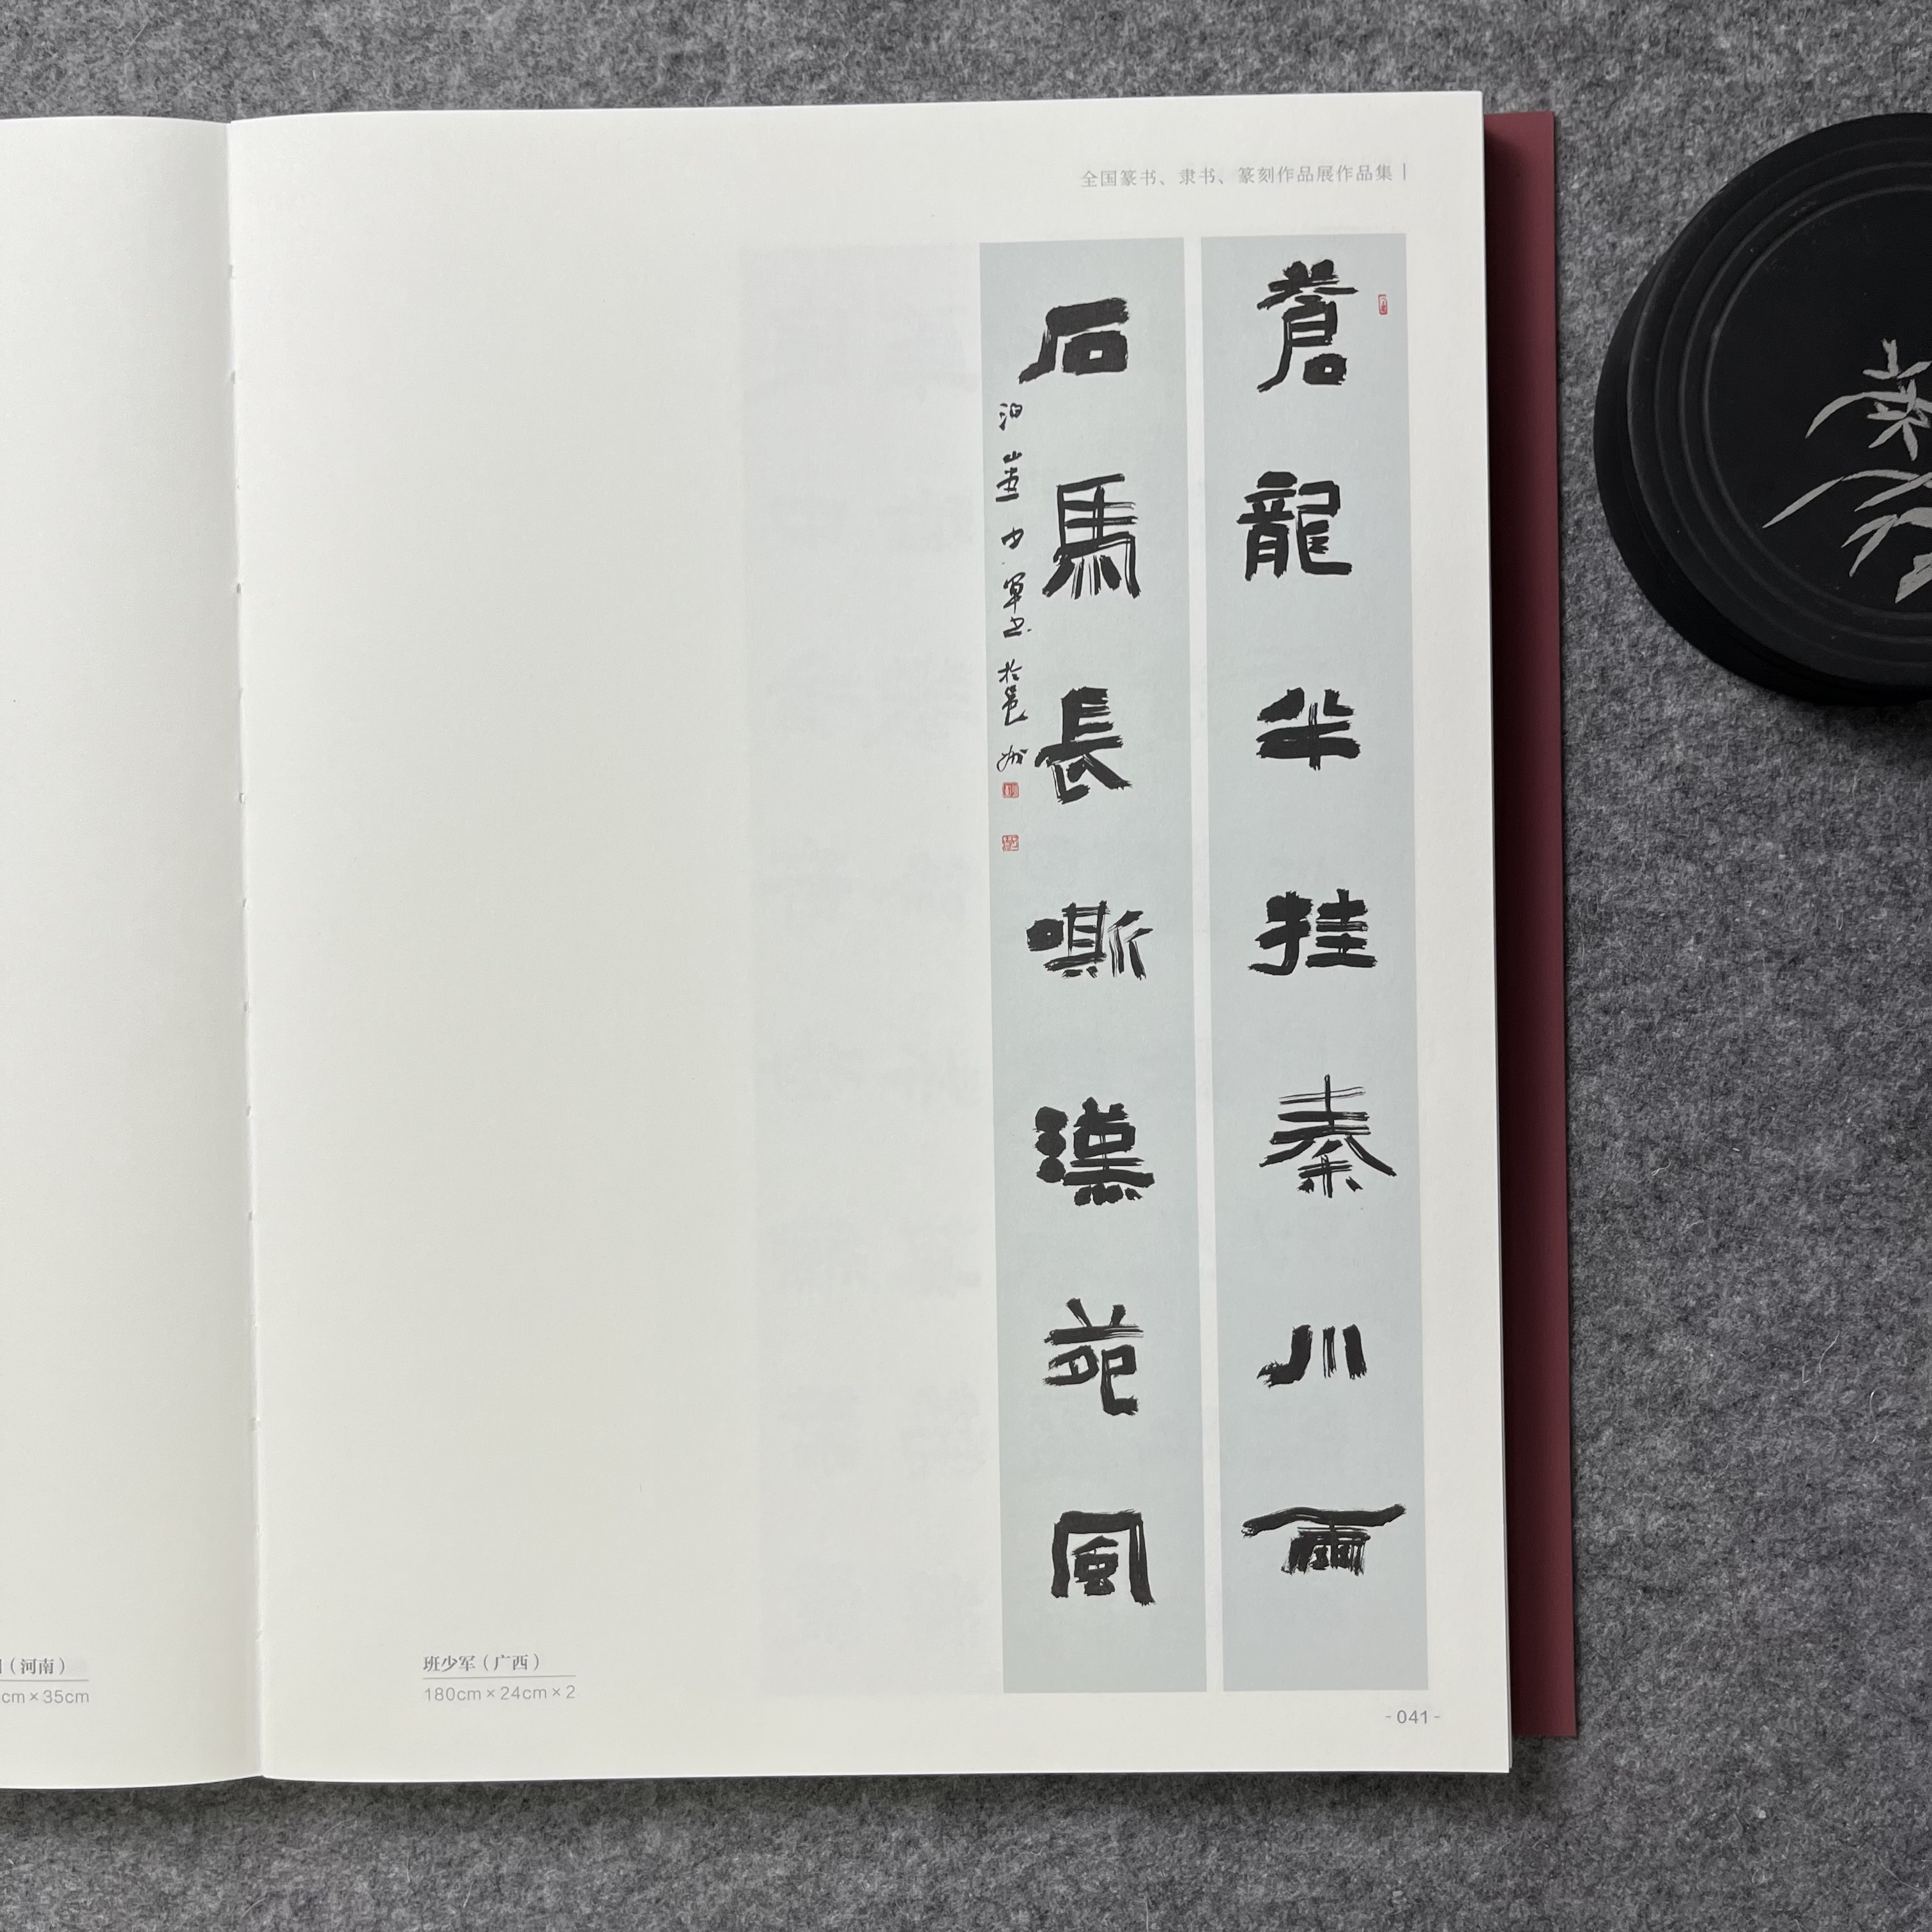 全国篆书、隶书、篆刻作品展作品集
蒼龍半挂秦川雨
石馬長嘶漢苑風
少軍書於邕州
（河南）
cm×35cm
班少军（广西）
180cm×24cm×2
-041-